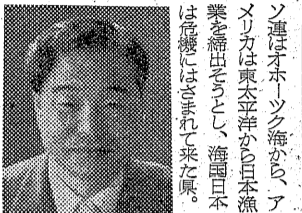 ソ連はオホーツク海から、ア
メリカは東太平洋から日本漁
業を締出そうとし、海国日本
は危機にはさまれて来た県。